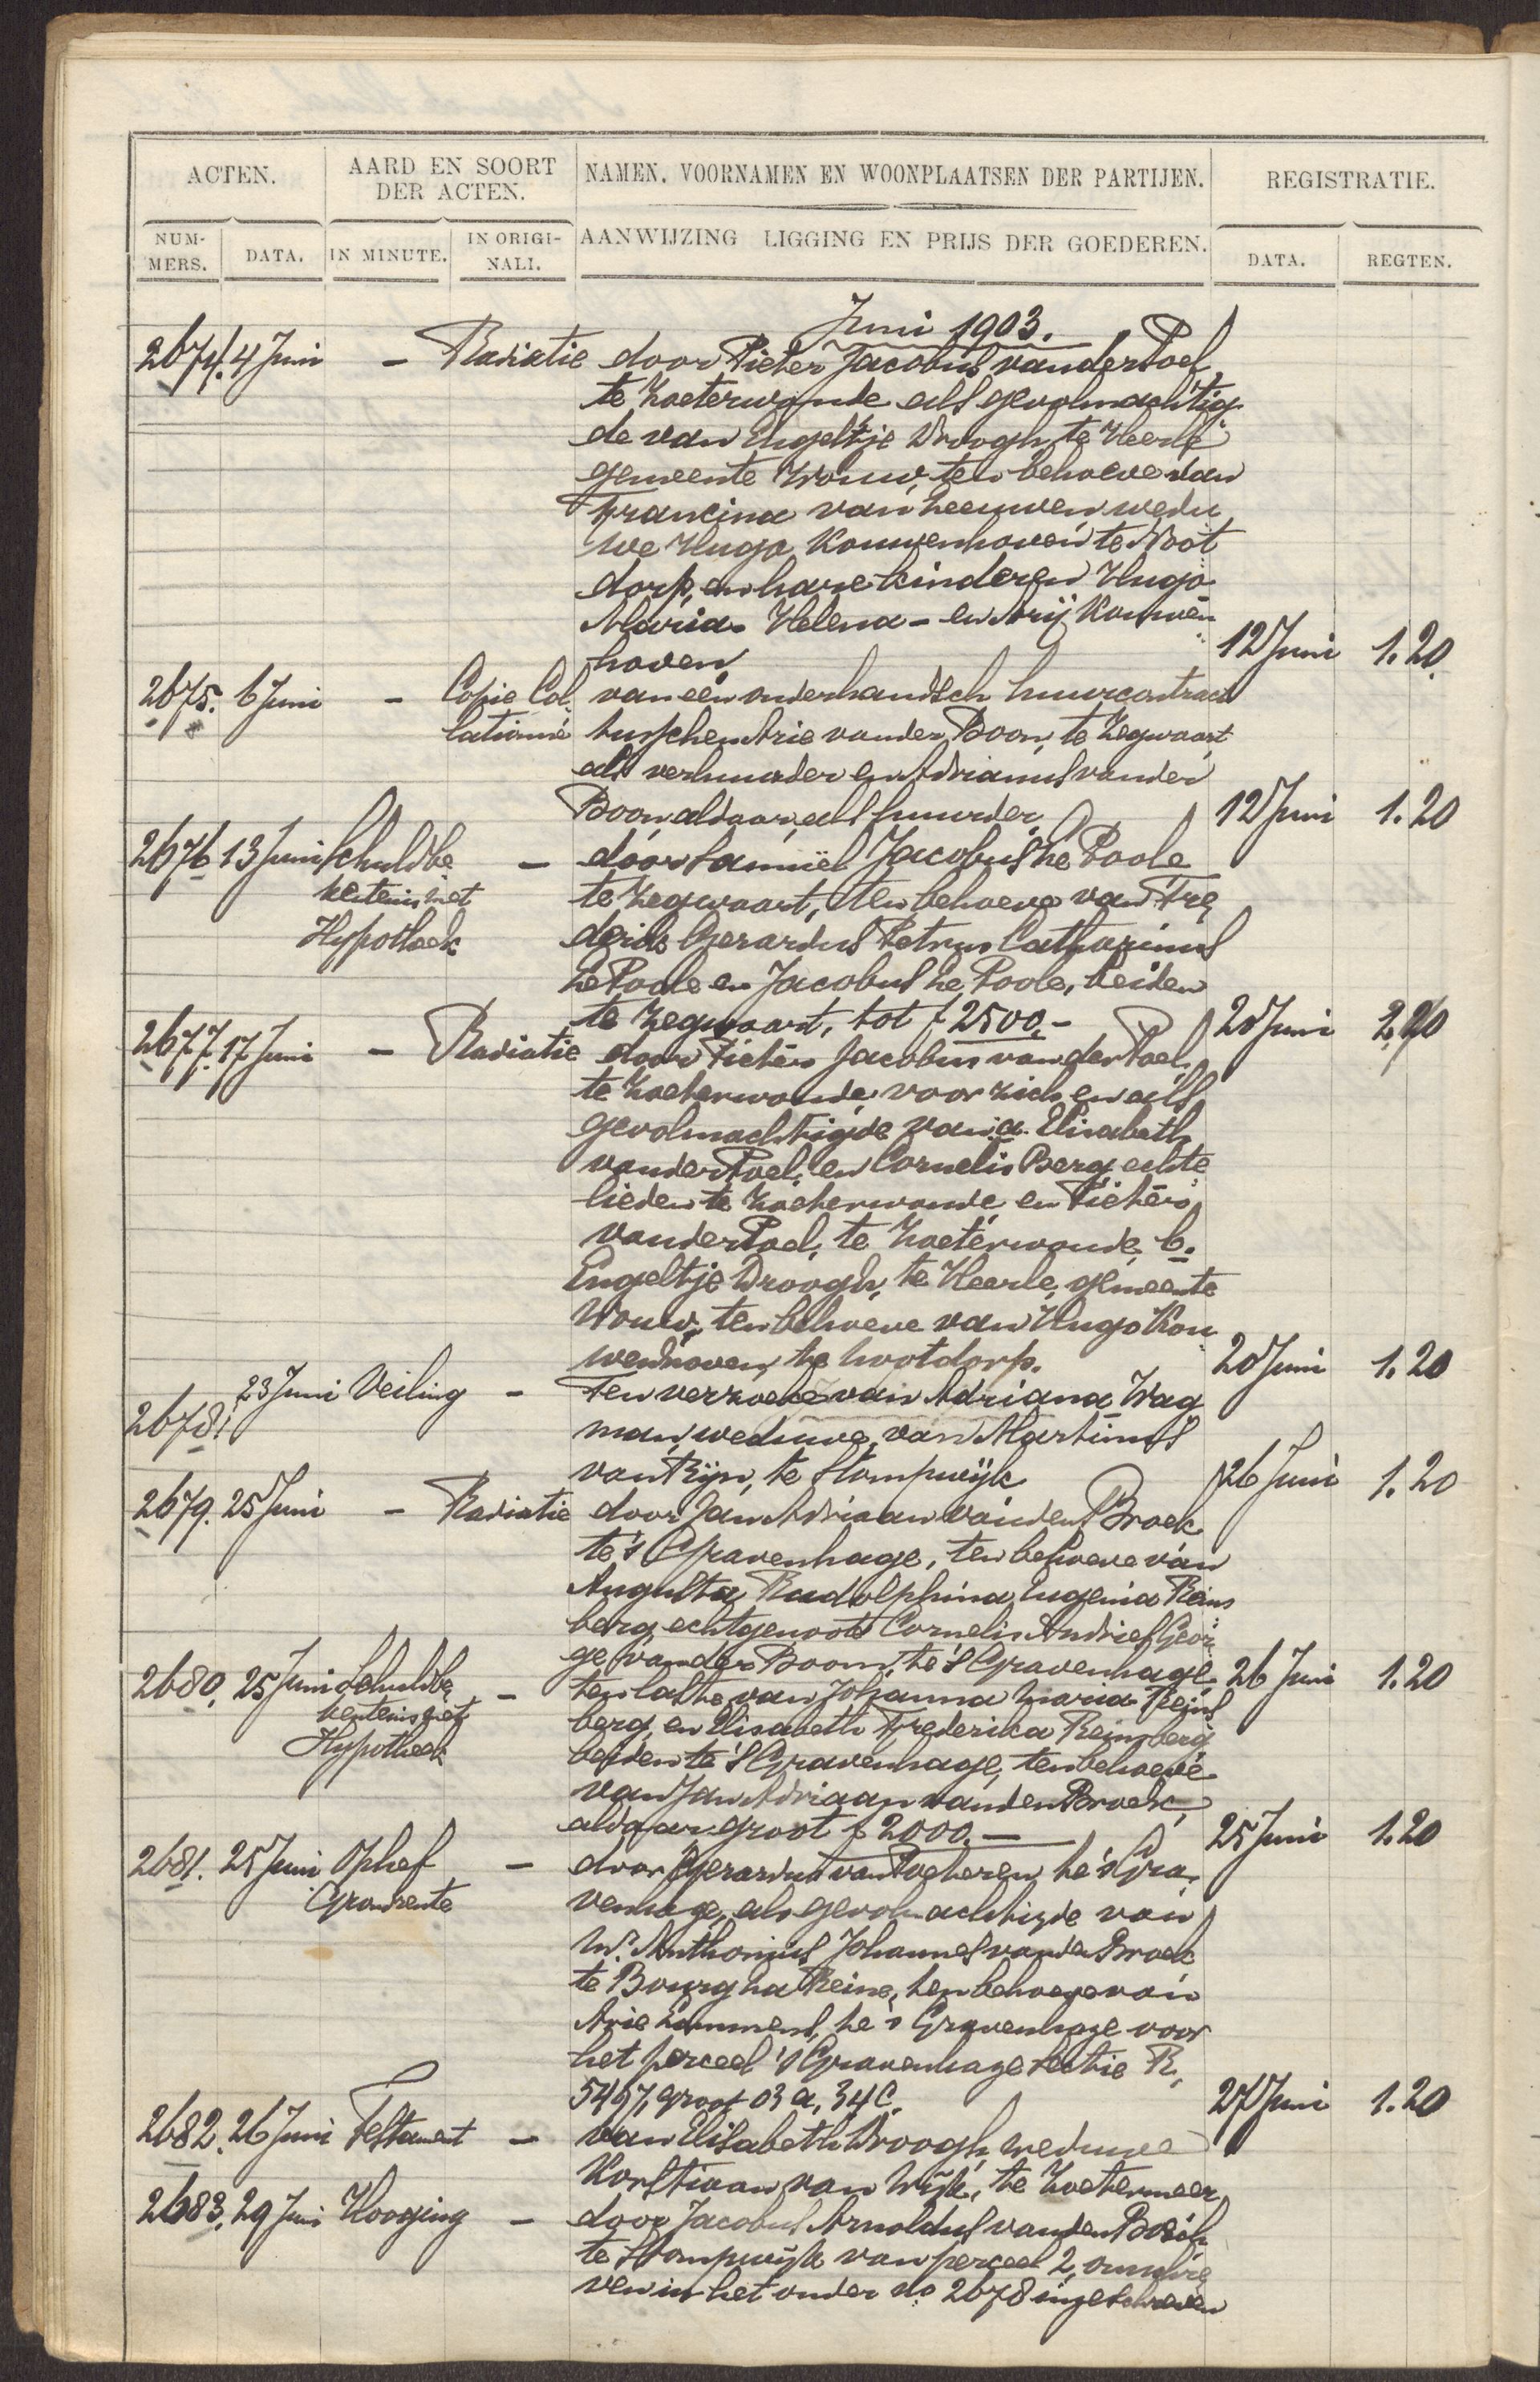 ACTEN. AARD EN SOORT DER ACTEN. NAMEN, VOORNAMEN EN WOONPLAATSEN DER PARTIJEN. REGISTRATIE.
NUM-MERS. DATA. IN MINUTE. IN ORIGI-NALI. AANWIJZING LIGGING EN PRIJS DER GOEDEREN. DATA. REGTEN.
Juni 1903.
2674. 4 Juni - Radiatie door Pieter Jacobus van der Poel,
te Zoeterwoude als gevolmachtig
de van Engeltje Droogh, te Heerle
gemeente Wouw, ten behoeve van
Francina van Leeuwen wedu
we Hugo Kouwenhoven te Noot
dorp, en hare kinderen Hugo
Maria- Helena- en Arij Kouwen
hoven 12 Juni 1.20
2675. 6 Juni - Copie Col van een onderhandsch huurcontract
lationné tusschen Arie van der Boon, te Zegwaart
als verhuurder en Adrianus van der
Boon, aldaar, als huurder 12 Juni 1.20
2676 13 Juni Schuldbe - door Samuël Jacobus he Poole
kentenis met te Zegwaart, ten behoeve van Fre
Hypotheek derik Gerardus Petrus Catharinus
he Poole en Jacobus he Poole, beiden
te Zegwaart, tot f 2500.- 20 Juni
2677. 17 Juni - Radiatie door Pieter Jacobus van der Poel,
te Zoeterwoude voor zich en als
gevolmachtigde van a. Elisabeth
van der Poel, en Cornelis Berg, echte
lieden te Zoeterwoude en Pieter
van der Poel, te Zoeterwoude, b.
Engeltje Droogh, te Heerle, gemeente
Wouw, ten behoeve van Hugo Kou
wenhoven, te Nootdorp. 20 Juni 1.20
2678. 23 Juni Veiling - Ten verzoeke van Adriana Wag
man, weduwe van Martinus
van Rijn, te Stompwijk 26 Juni 1.20
2679. 25 Juni - Radiatie door Jan Adriaan van den Broek
te 's Gravenhage, ten behoeve van
Augusta Rudolphina Eugenia Reins
berg echtgenoote Cornelis Andries Geor
ge van der Boom, te 's Gravenhage 26 Juni 1.20
2680. 25 Juni Schuldbe - ten laste van Johanna Maria Reins
kentenis met berg, en Elisabeth Frederika Reinsberg
Hypotheek beiden te 's Gravenhage, ten behoeve
van Jan Adriaan van den Broek,
aldaar groot f 2000.- 25 Juni 1.20
2681. 25 Juni Ophef - door Gerardus van Poeteren, te 's Gra
Grondrente venhage, als gevolmachtigde van
Mr. Anthonius Johannes van den Broek
te Bourg la Reine, ten behoeve van
Arie Lummens, te 's Gravenhage voor
het perceel 's Gravenhage Sectie R,
5497, groot 03 a, 34 c. 27 Juni 1.20
2682. 26 Juni Testament - van Elisabeth Droogh, weduwe
Korstiaan van Wijk, te Zoetermeer
2683. 29 Juni Hooging - door Jacobus Arnoldus van den Bosch
te Stompwijk van perceel 2, omschre
ven in het onder no 2678 ingeschreven